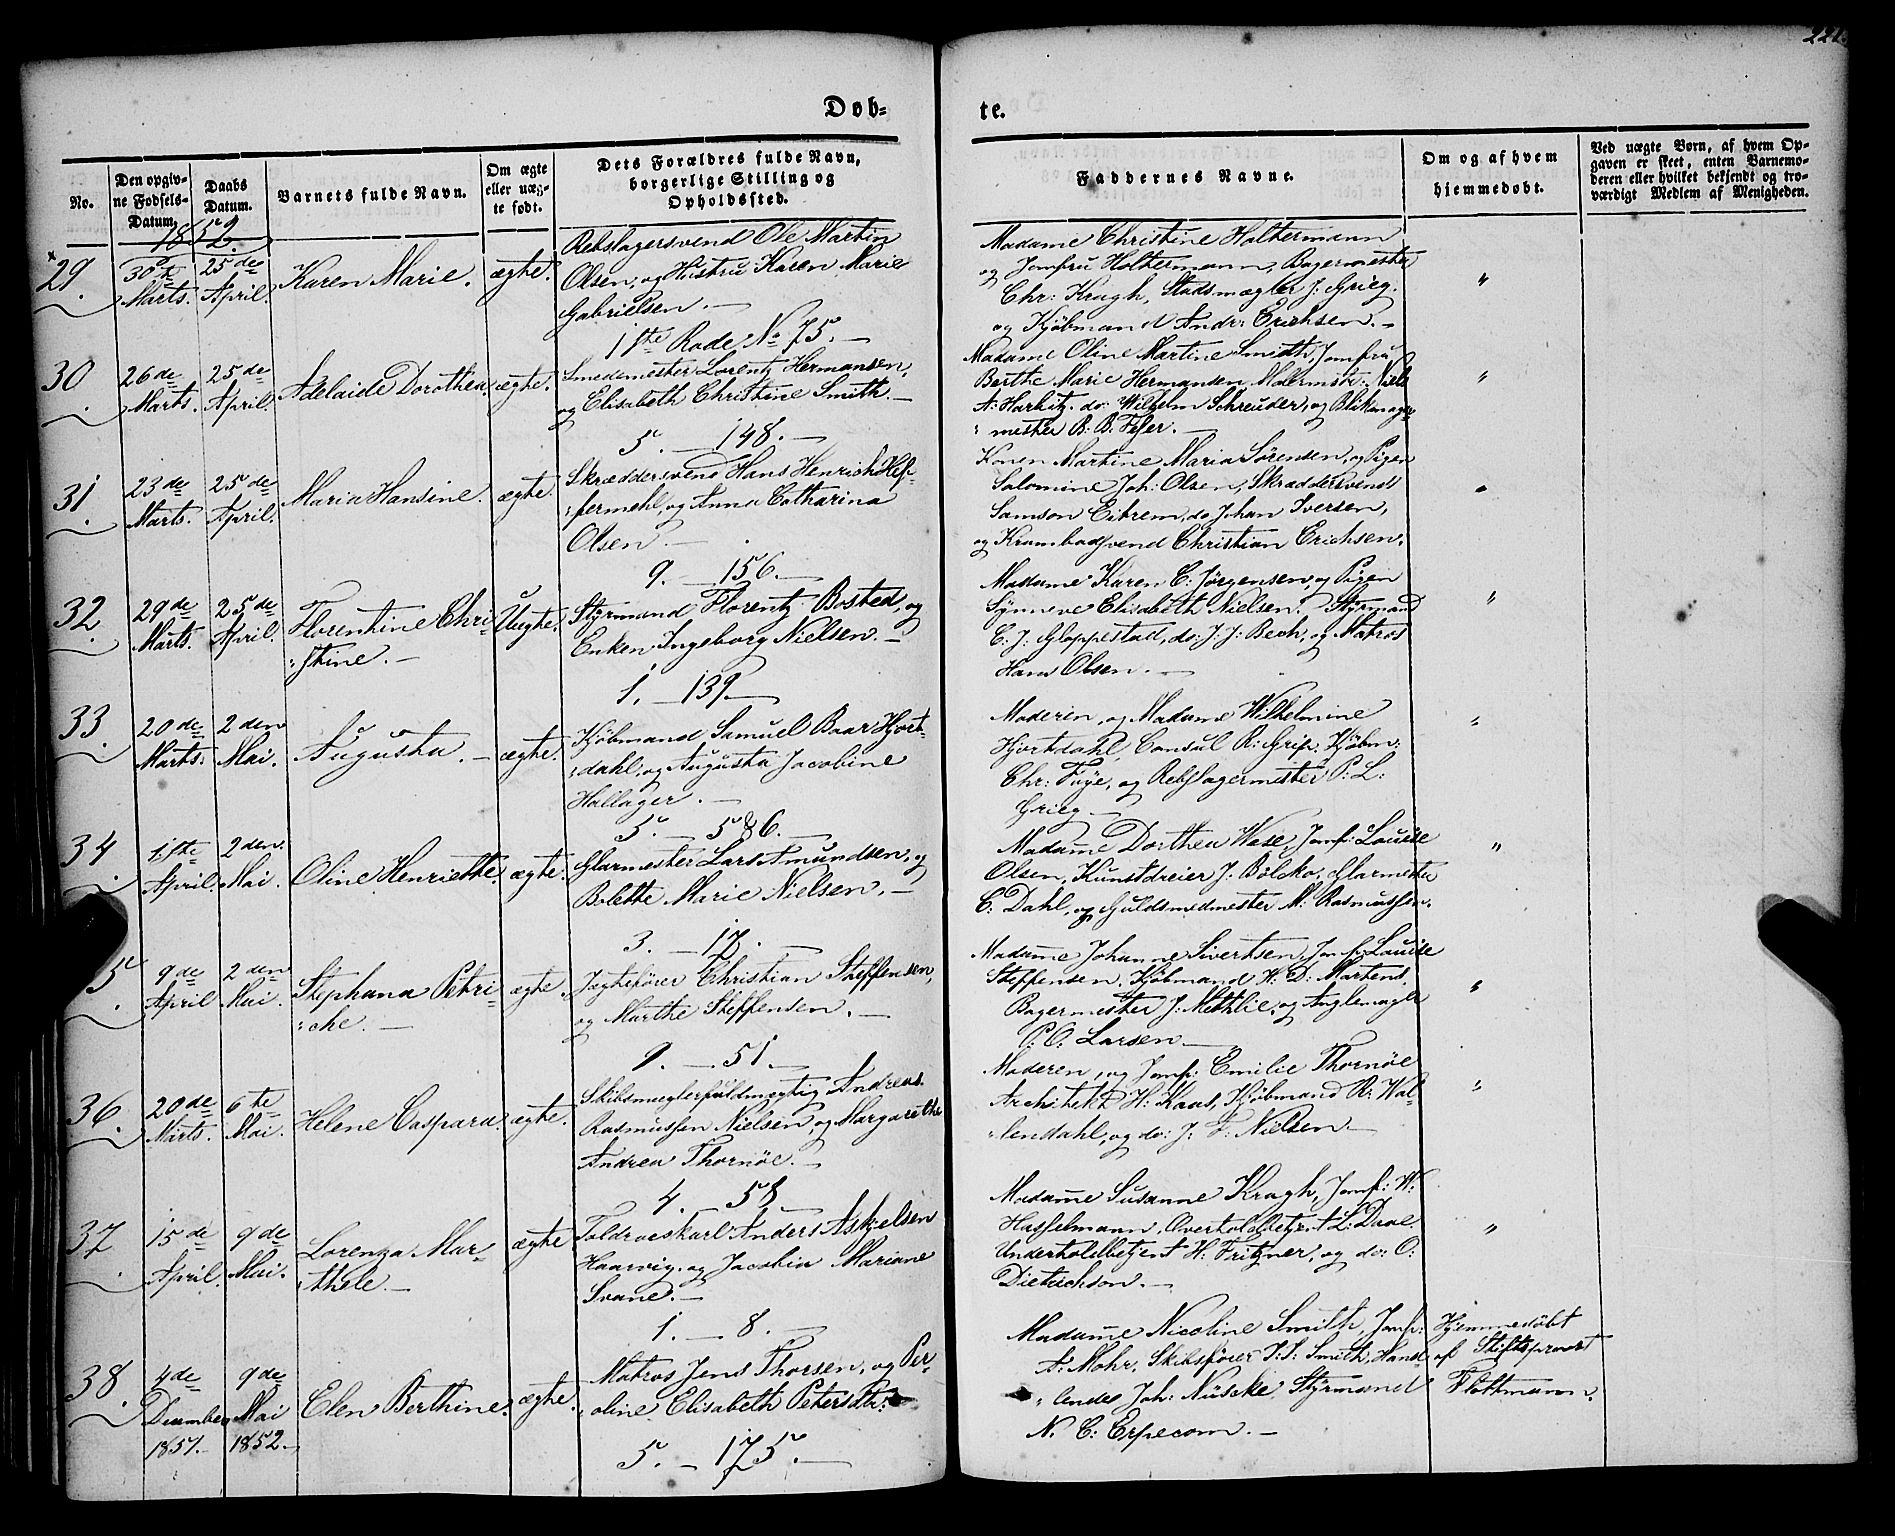 Døb=
te.
No.
Den opgiv=
ne Fødsels=
Datum.
Daabs
Datum.
Barnets fulde Navn.
Om ægte
eller uæg=
te født.
Dets Forældres fulde Navn,
borgerlige Stilling og
Opholdssted.
Faddernes Navne.
Om og af hvem
hjemmedøbt.
Ved uægte Børn, af hvem Op=
gaven er skeet, enten Barnemo=
deren eller hvilket bekjendt og tro=
værdigt Medlem af Menigheden.
1852.
29.
30te
Marts.
25de
April.
Karen Marie.
ægte.
Rebslagersvend Ole Martin
Olsen, og Hustru Karen Marie
Gabrielsen. —
1ste Rode No 75. —
Madame Christine Holtermann
og Jomfru Holtermann, Bagermester
Chr: Krogh, Stadsmægler J: Grieg.
og Kjøbmand Andr: Erichsen. —
"
30.
26de
Marts.
25de
April.
Adelaide Dorothea.
ægte.
Smedemester Lorentz Hermansen,
og Elisabeth Christine Smith. —
5. — 148. —
Madame Oline Martine Smidth, Jomfru
Berthe Marie Hermansen, Malermstr: Niels
A: Harbitz, do: Wilhelm Schreuder, og Blikmager
: mester B: B. Feser. —
"
31.
23de
Marts.
25de
April.
Maria Hansine.
ægte.
Skræddersvend Hans Henrich Hef-
: fermehl, og Anna Catharina
Olsen. —
9. — 156. —
Konen Martine Maria Sørensen, og Pigen
Salomine Joh: Olsen, Skræddersvend
Samson Eitrem, do Johan Iversen,
og Krambodsvend Christian Erichsen.
"
32.
29de
Marts.
25de
April.
Florentine Chri-
: stine. —
Uægte.
Styrmand Florentz Bosted, og
Enken Ingeborg Nielsen. —
1. — 139. —
Madame Karen C: Jørgensen, og Pigen
Synneve Elisabeth Nielsen. Styrmand
C: J: Gloppestad, do: J. J: Bech, og Matros
Hans Olsen. —
"
33.
20de
Marts.
2den
Mai.
Augusta. —
ægte.
Kjøbmand Samuel Baar Hjort-
: dahl, og Augusta Jacobine
Hallager. —
5. — 586. —
Moderen, og Madame Wilhelmine
Hjortdahl, Consul R: Grip, Kjøbm:
Chr: Føye, og Rebslagermester P: L:
Grieg —
"
34.
1ste
April.
2den
Mai.
Oline Henriette.
ægte.
Glarmester Lars Amundsen, og
Bolette Marie Nielsen. —
3. — 17. —
Madame Dorthea Wese, Jomf: Louise
Olsen, Kunstdreier J: Bølcko, Glarmester
C: Dahl, og Guldsmedmester M: Rasmussen.
"
5.
9de
April
2den
Mai.
Stephana Petri-
: che. —
ægte
Jægtefører Christian Steffensen,
og Marthe Steffensen. —
9. — 51. —
Madame Johanne Sivertsen, Jomf: Louise
Steffensen, Kjøbmand H: D: Martens,
Bagermester J: Methlie, og Anglemager
P: O: Larsen —
"
36.
20de
Marts.
6te
Mai.
Helene Caspara.
ægte.
Skibsmæglerfuldmægtig Andreas
Rasmussen Nielsen, og Margarethe
Andrea Thornöe. —
4. 58
Moderen, og Jomf: Emilie Thornöe
Architekt H: Kaas, Kjøbmand R: Wal-
: lendahl, og do: J: F: Nielsen. —
"
37.
15de
April.
9de
Mai.
Lorenza Mar-
: thele. —
ægte
Toldroeskarl Anders Askjelsen
Haarvig, og Jacobia Mariane
Svane. —
1. — 8. —
Madame Susanne Krogh, Jomf: W:
Hasselmann, Overtoldbetjent L: Daae,
Undertoldbetjent H: Fritzner, og do: O:
Dietrichson. —
"
38.
4de
December
1851.
9de
Mai
1852. —
Elen Berthine.
ægte.
Matros Jens Thorsen, og Per-
: oline Elisabeth Petersdtr:
5. — 175. —
Madame Nicoline Smith, Jomf:
A: Mohr, Skibsfører J: S: Smith, Hand-
: lende Joh: Nüscke, Styrmand
N. C: Especom. —
Hjemmedøbt
af Stiftsprovst
Flottmann.